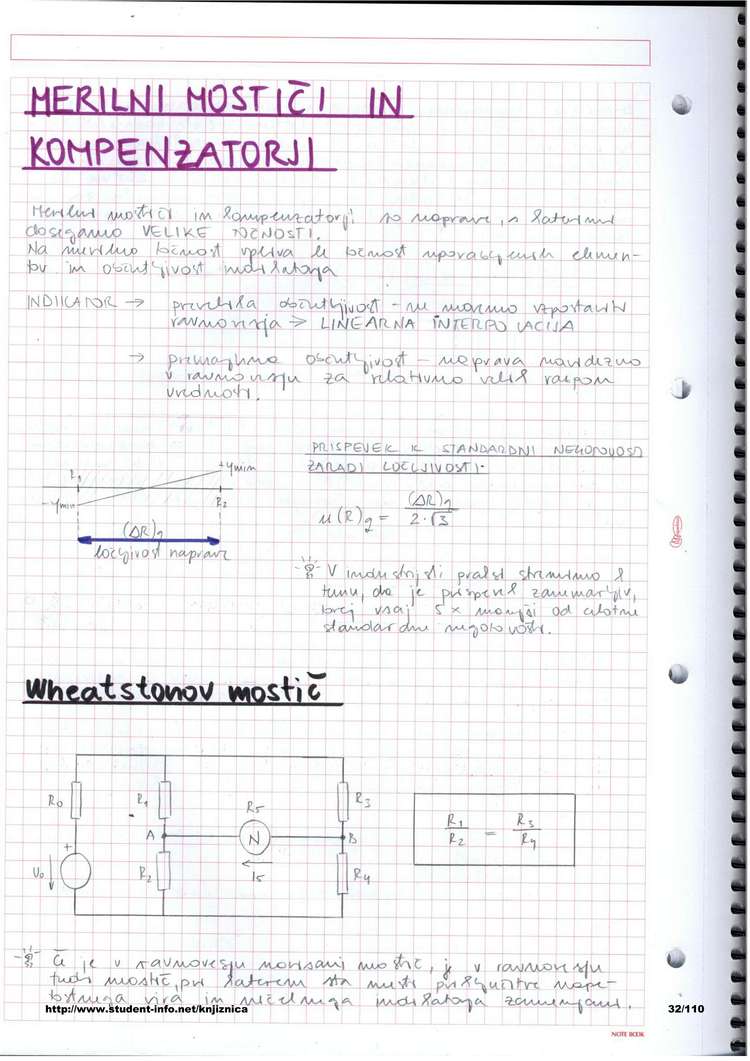 MERILNI MOSTIČI IN
KOMPENZATORJI
Merilni mostiči in kompenzatorji so naprave, s katerimi
dosegamo VELIKE TOČNOSTI.
Na merilno točnost vpliva le točnost uporabljenih elemen-
tov in občutljivost indikatorja
INDIKATOR → prevelika občutljivost - ne moremo vzpostaviti
ravnovesja → LINEARNA INTERPOLACIJA
→ premajhna občutljivost - naprava navidezno
v ravnovesju za relativno velik razpon
vrednosti.
PRISPEVEK K STANDARDNI NEGOTOVOSTI
ZARADI LOČLJIVOSTI.
R1 +ymin
-ymin R2
(ΔR)g
ločljivost naprave
u(R)g = (ΔR)g / 2·√3
V industriji praksi stremimo k
temu, da je prispevek zanemarljiv,
torej vsaj 5x manjši od celotne
standardne negotovosti.
Wheatstonov mostič
R0 R1 R5 R3
A N B
U0 R2 I5 R4
R1/R2 = R3/R4
Če je v ravnovesju narisani mostič, je v ravnovesju
tudi mostič, pri katerem sta mesti priključitve nape-
tostnega vira in ničelnega indikatorja zamenjani.
http://www.student-info.net/knjiznica
32/110
NOTE BOOK